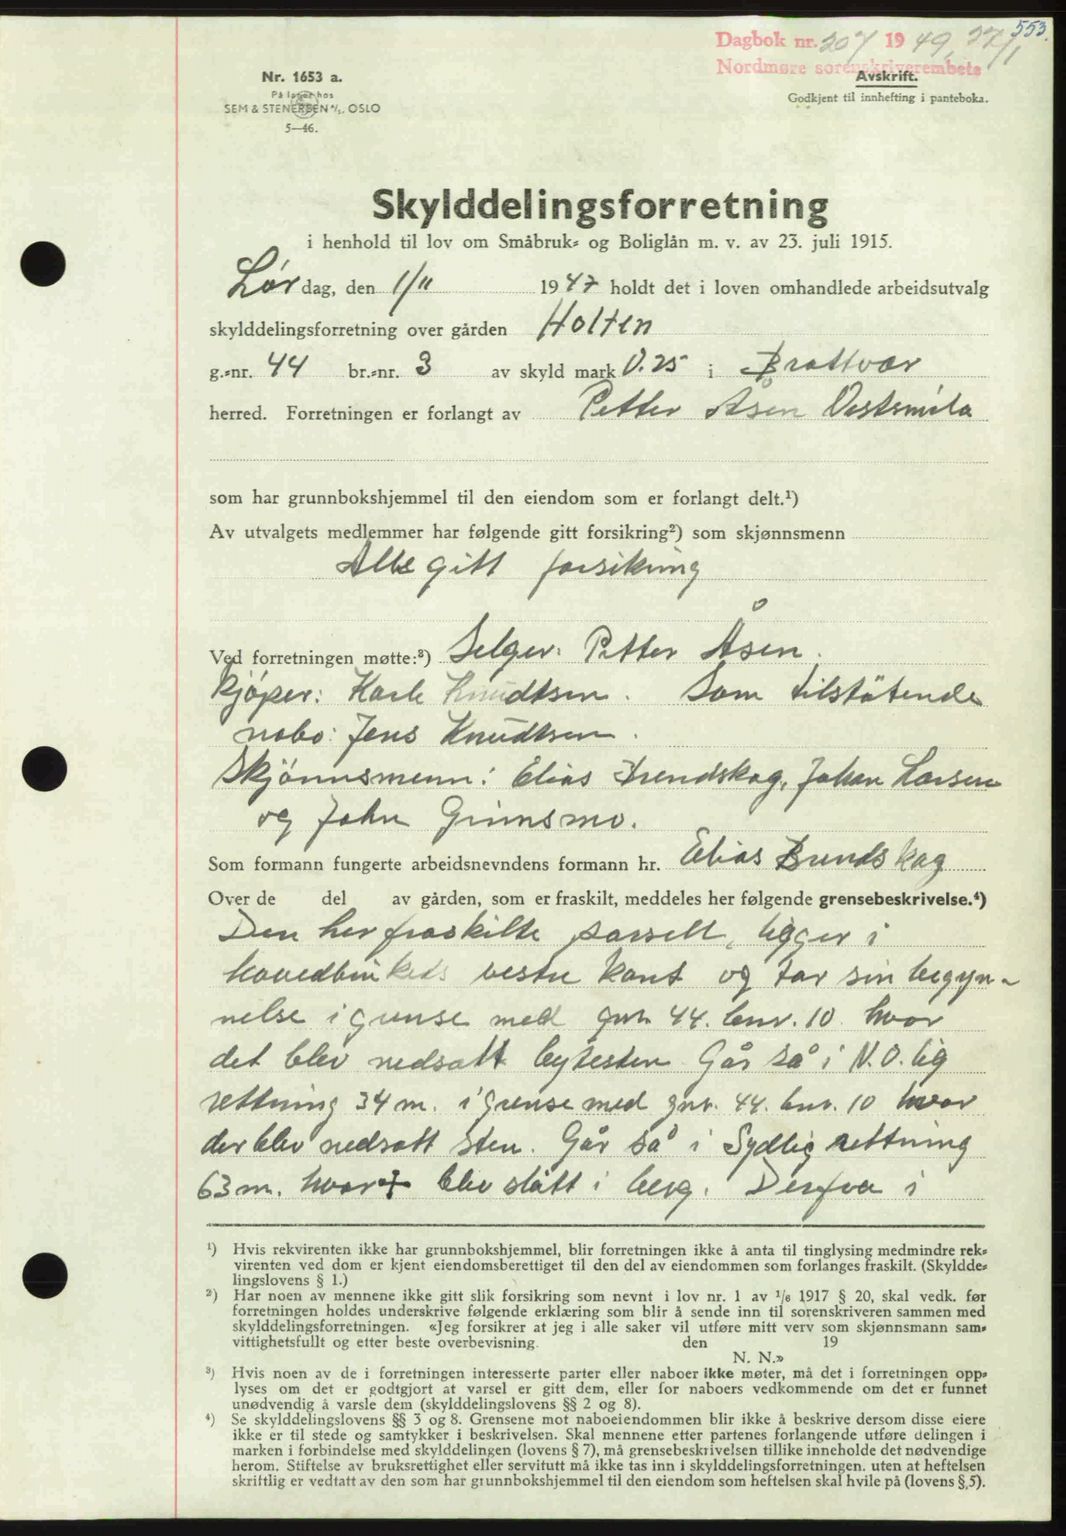 553.
Dagbok nr. 207 1949, 27/1
Nordmøre sorenskriverembete
Nr. 1653 a.
På lager hos
SEM & STENERSEN A/S. OSLO
5—46.
Avskrift.
Godkjent til innhefting i panteboka.
Skylddelingsforretning
i henhold til lov om Småbruk- og Boliglån m. v. av 23. juli 1915.
Lørdag, den 1/11 1947 holdt det i loven omhandlede arbeidsutvalg
skylddelingsforretning over gården Holten
g.-nr. 44 br.-nr. 3 av skyld mark 0.25 i Brattvær
herred. Forretningen er forlangt av Petter Åsen Vestsmøla
som har grunnbokshjemmel til den eiendom som er forlangt delt.¹)
Av utvalgets medlemmer har følgende gitt forsikring²) som skjønnsmenn
Alle gitt forsikring
Ved forretningen møtte:³) Selger: Petter Åsen.
Kjøper: Karle Knudtsen. Som tilstøtende
nabo: Jens Knudtsen.
Skjønnsmenn: Elias Brendskag, Johan Larsen
og John Grimsmo.
Som formann fungerte arbeidsnevndens formann hr. Elias Brendskag
Over de del av gården, som er fraskilt, meddeles her følgende grensebeskrivelse.⁴)
Den her fraskilte parsell, ligger i
hovedbrukets vestre kant og tar sin begyn-
nelse i grense med gnr. 44. bnr. 10 hvor
det blev nedsatt bytesten Går så i N.O.lig
rettning 34 m. i grense med gnr. 44. bnr. 10 hvor
der blev nedsatt sten. Går så i Sydlig rettning
63 m. hvor + blev slått i berg. Derfra i
¹) Hvis rekvirenten ikke har grunnbokshjemmel, blir forretningen ikke å anta til tinglysing medmindre rek-
virenten ved dom er kjent eiendomsberettiget til den del av eiendommen som forlanges fraskilt. (Skyldde-
lingslovens § 1.)
²) Har noen av mennene ikke gitt slik forsikring som nevnt i lov nr. 1 av 1/6 1917 § 20, skal vedk. før
forretningen holdes underskrive følgende erklæring som blir å sende inn til sorenskriveren sammen med
skylddelingsforretningen. «Jeg forsikrer at jeg i alle saker vil utføre mitt verv som skjønnsmann sam-
vittighetsfullt og etter beste overbevisning. den 19
N. N.»
³) Hvis noen av de i forretningen interesserte parter eller naboer ikke møter, må det i forretningen opp-
lyses om det er godtgjort at varsel er gitt dem, eller for naboers vedkommende om det er funnet
unødvendig å varsle dem (skylddelingslovens §§ 2 og 8).
⁴) Se skylddelingslovens §§ 3 og 8. Grensene mot naboeiendommen blir ikke å beskrive dersom disse eiere
ikke er til stede og samtykker i beskrivelsen. Skal mennene etter partenes forlangende utføre delingen i
marken i forbindelse med skylddelingen (lovens § 7), må grensebeskrivelsen tillike inneholde det nødvendige
herom. Stiftelse av bruksrettighet eller servitutt må ikke tas inn i skylddelingsforretningen. uten at heftelsen
skriftlig er vedtatt av den som har grunnbokshjemmel til den eiendom som heftelsen skal hvile på (lovens § 5).